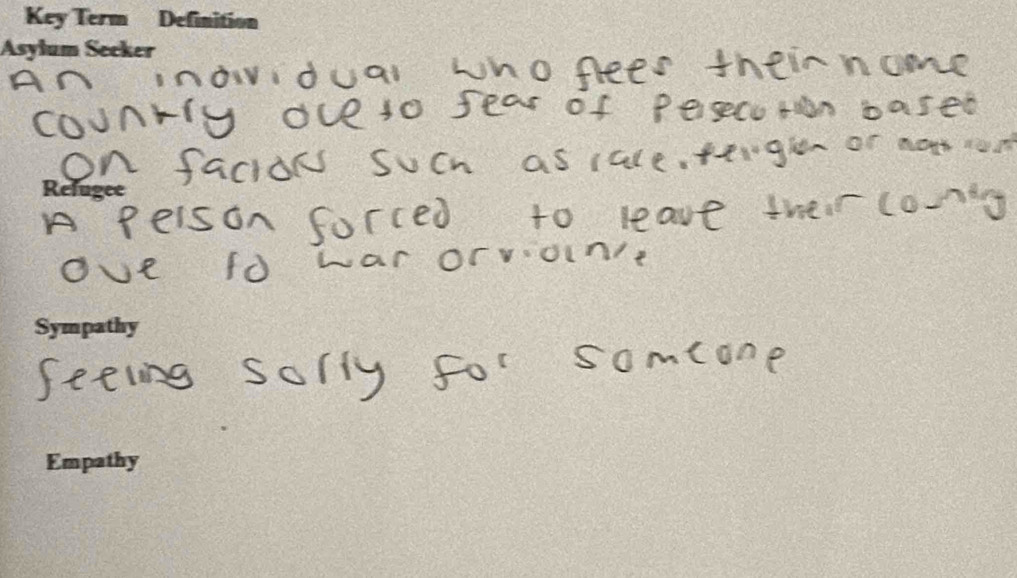 Key Term Definition
Asylum Seeker
An individual who flees their home
country due to fear of persecution based
on factors such as race, religion or
Refugee
A person forced to leave their country
due to war or violence
Sympathy
feeling sorry for someone
Empathy